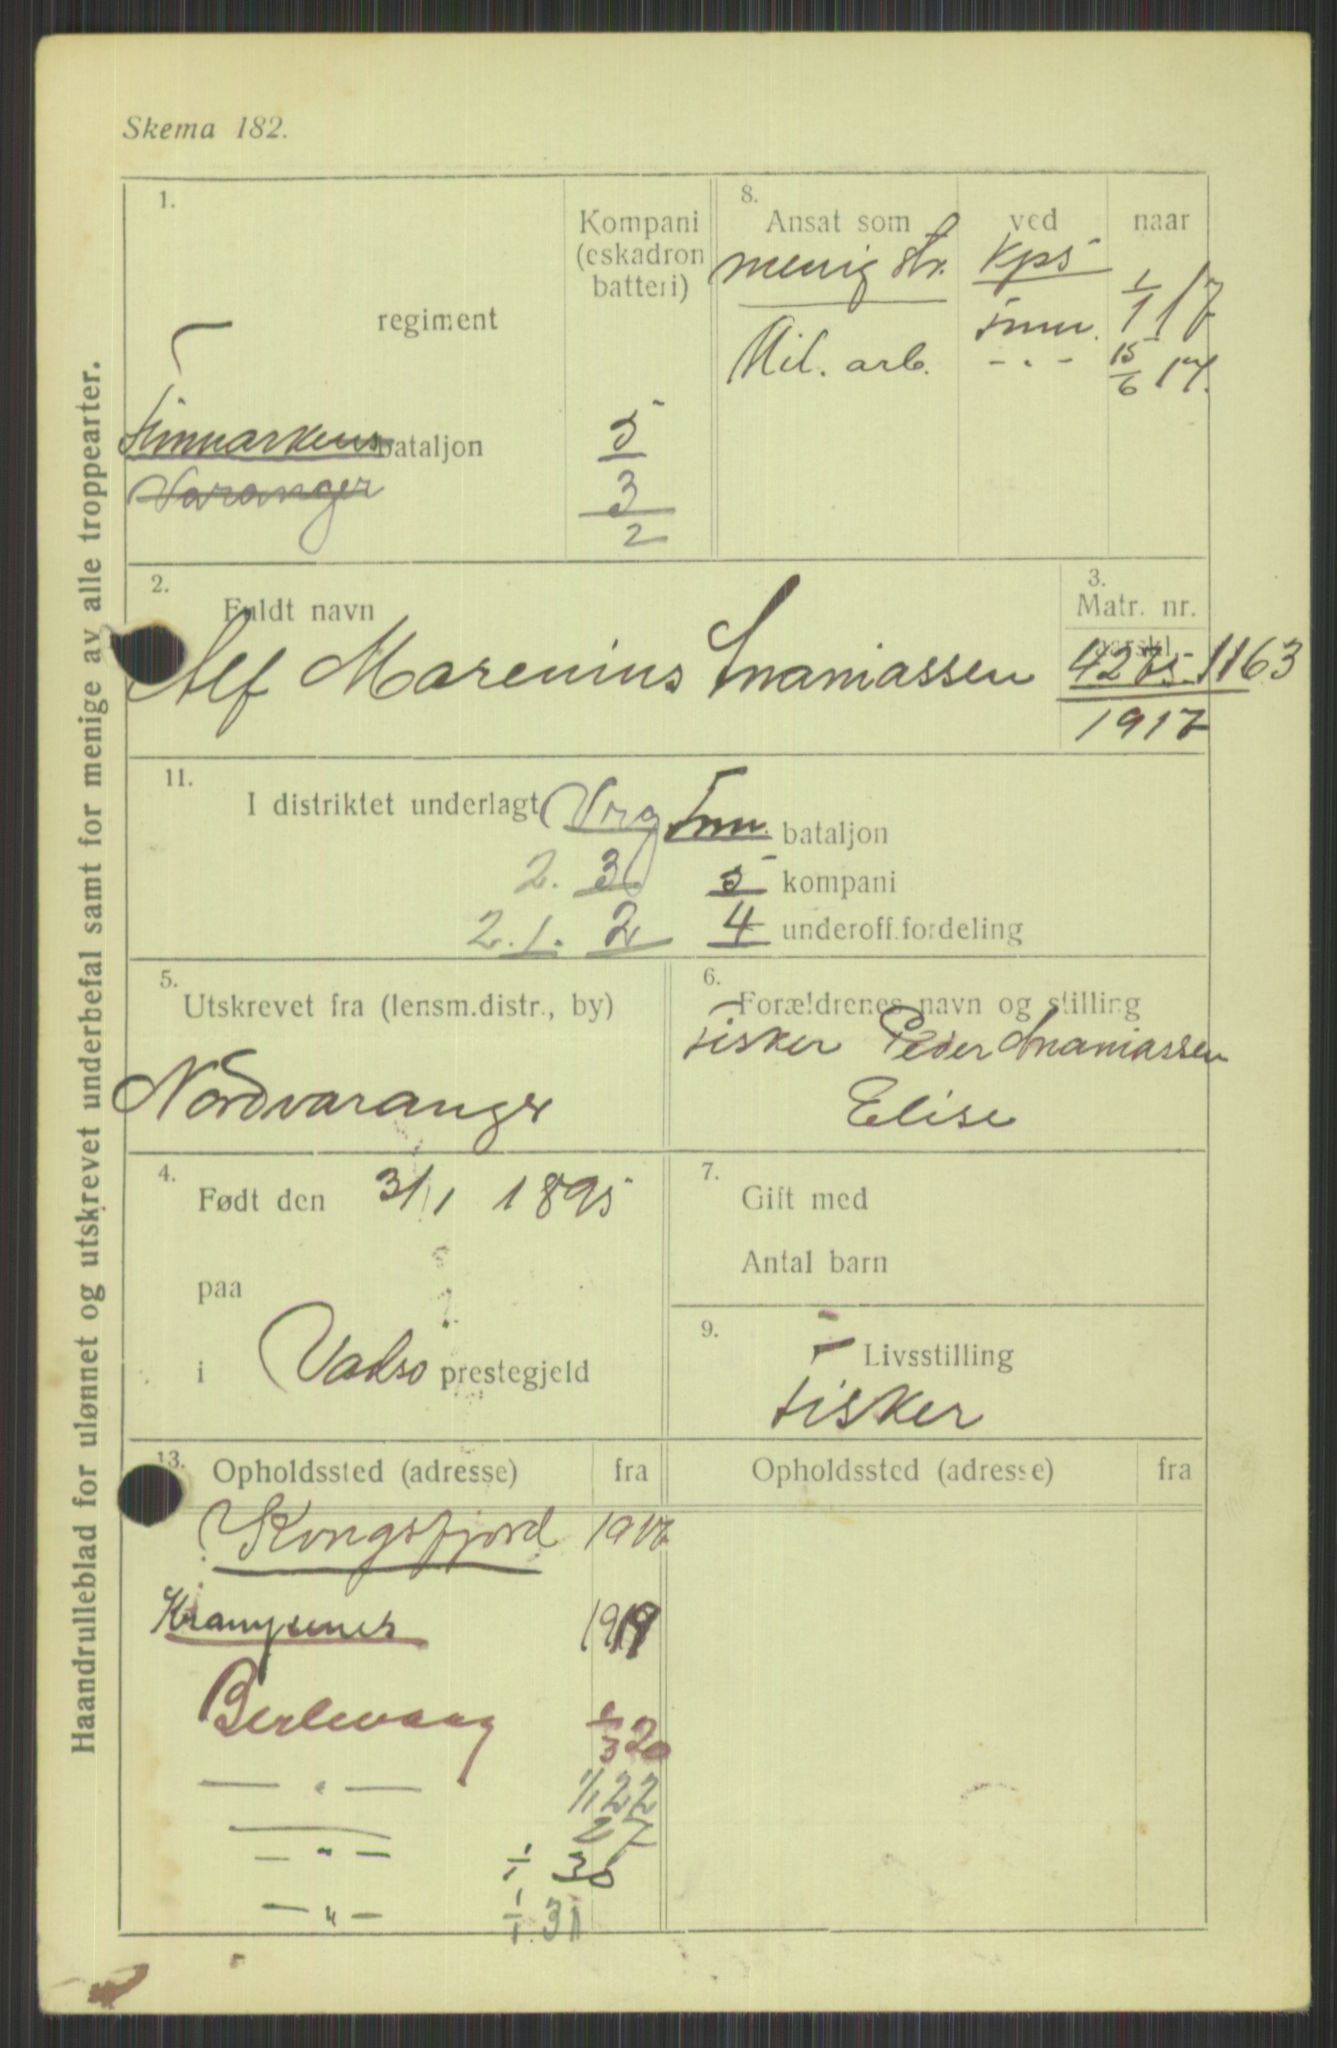 Skema 182.
Haandrulleblad for ulønnet og utskrevet underbefal samt for menige av alle troppearter.
1.
regiment
Kompani
(eskadron
batteri)
Finmarkens bataljon
5
Varanger
3
2
8.
Ansat som ved naar
menig str. Kp 5 1/1 17
Finm.
Mil. arb. - " - 15/6 17.
2.
Fuldt navn
Alf Marenius Ananiassen
3.
Matr. nr.
aarskl.
1163
1917
11.
I distriktet underlagt Vrg Finm. bataljon
2. 3 5 kompani
2. 1. 2 4 underoff.fordeling
5.
Utskrevet fra (lensm.distr., by)
Nordvaranger
6.
Forældrenes navn og stilling
fisker Peder Ananiassen
Elise
4.
Født den 31/1 1895
paa
i Vadsø prestegjeld
7.
Gift med
Antal barn
9.
Livsstilling
fisker
13.
Opholdssted (adresse) fra
Opholdssted (adresse) fra
Kongsfjord 1917
1919
Berlevaag 1/3 20
— " — 1/1 22
27
— " — 1/1 30
— " — 1/1 31